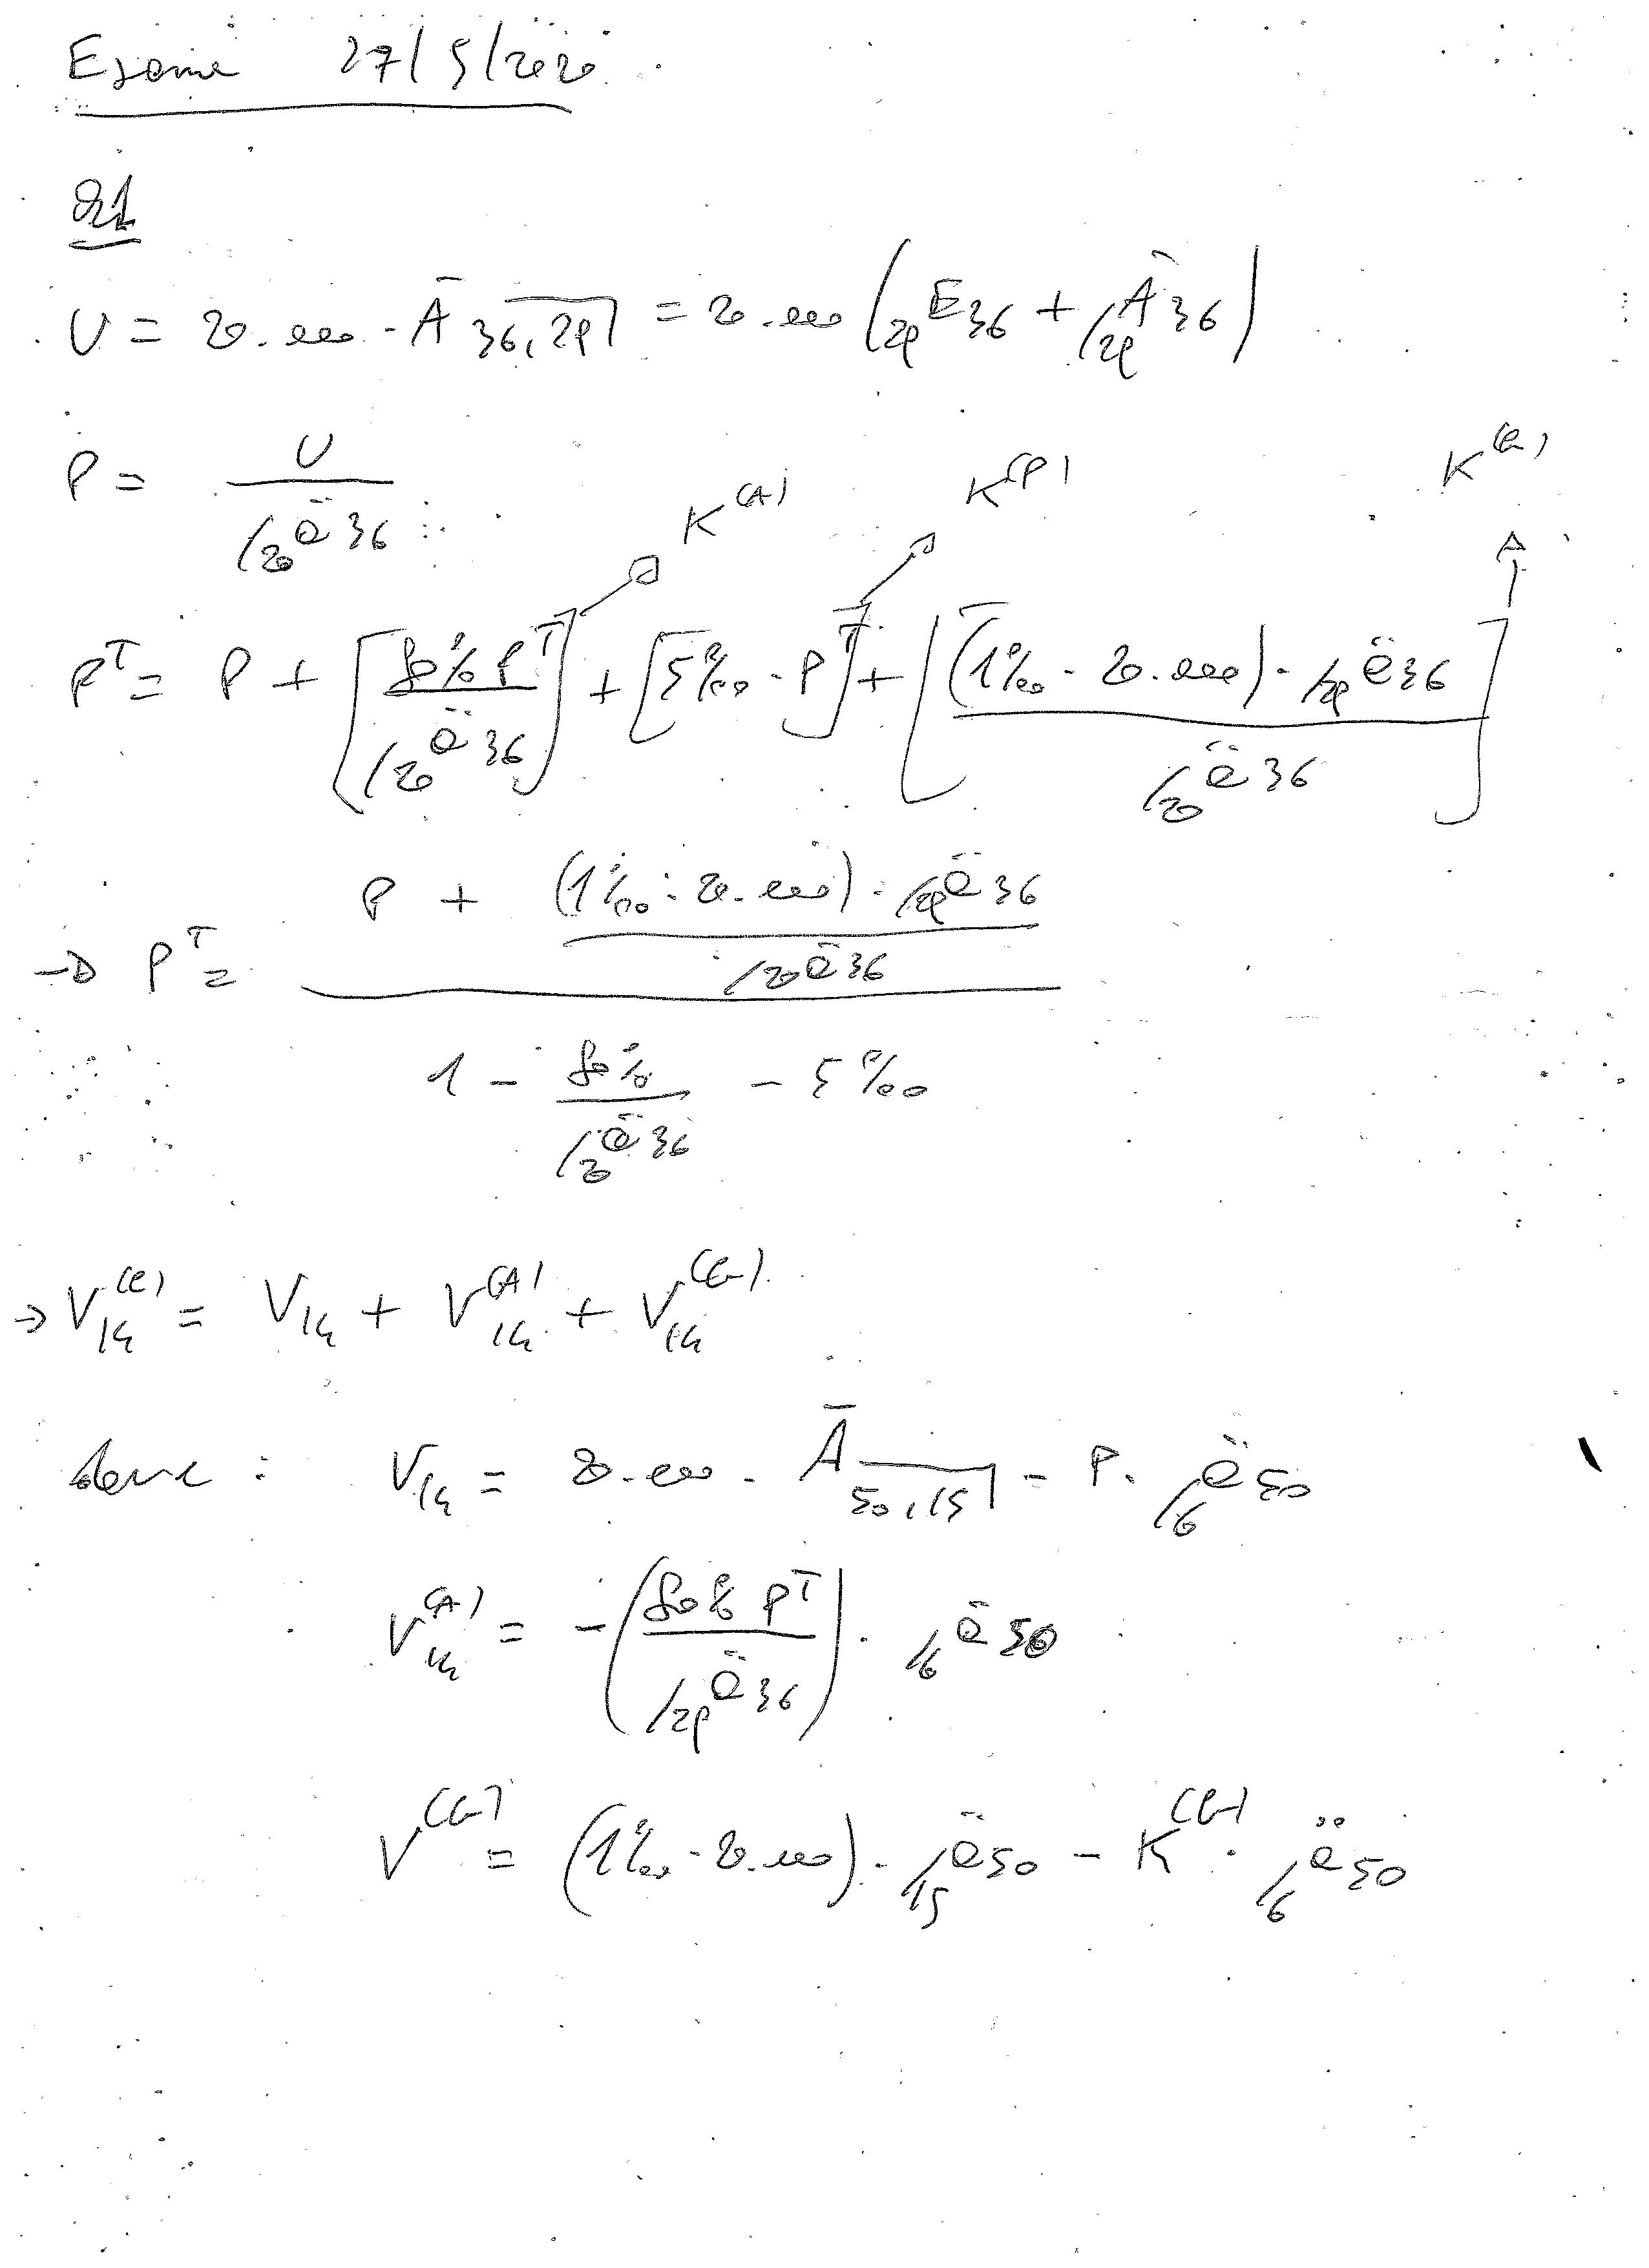 Esame 27/5/2020
Q1
U = 20.000 · Ā 36,29⌉ = 20.000 (29E36 + /29Ā36)
P = U / /20ä36
K(A) K(P) K(G)
P^T = P + [80% P^T / /20ä36] + [5‰ · P^T] + [(1‰ · 20.000) · /29ä36 / /20ä36]
→ P^T = (P + (1‰ · 20.000) · /29ä36 / /20ä36) / (1 - 80% / /20ä36 - 5‰)
→ V14^(C) = V14 + V14^(A) + V14^(G)
dove : V14 = 20.000 · Ā 50,15⌉ - P · /6ä50
V14^(A) = -(80% P^T / /29ä36) · /6ä50
V^(G) = (1‰ · 20.000) · /15ä50 - K^(G) · /6ä50